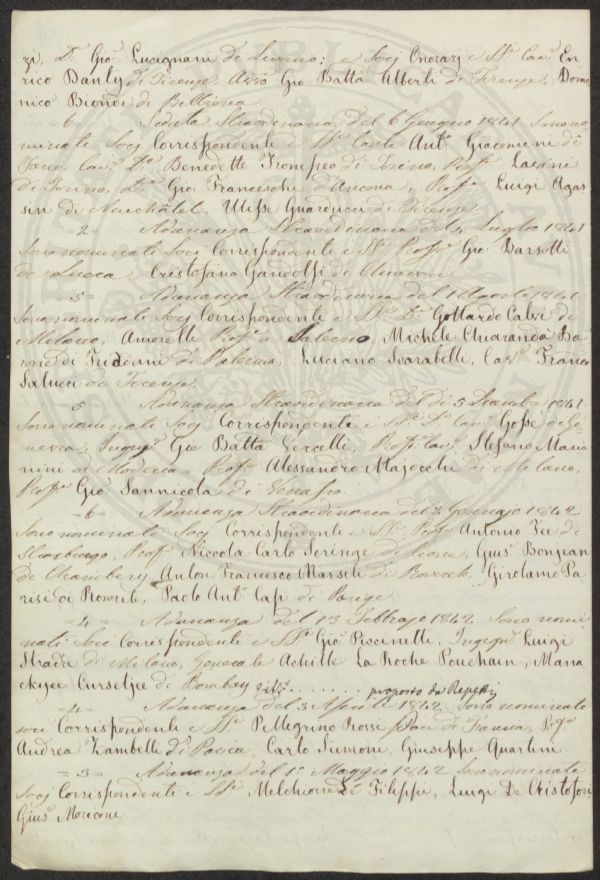 zi, D.r Gio. Lucignani di Livorno; e Socj Onorarj i SS.i Cav.e En
rico Danly di Firenze, Avv.o Gio Batta Alberti di Firenze, Dome
nico Biondi di Bibbiena
=6= Seduta Straordinaria del 6 Giugno 1841 Sono no
minati Socj Corrispondenti i SS.i Conte Ant.o Giacomini di
Fano, Cav.e D.re Benedetto Trompeo di Torino, Prof.re Lavini
di Torino, D.re Gio Franceschi d'Ancona, Prof.re Luigi Agas
siz di Neuchâtel, Ulisse Guarducci di Firenze
=2= Adunanza Straordinaria del 4 Luglio 1841
Sono nominati Socj Corrispondenti i SS.i Prof.re Gio Barsotti
di Lucca, Cristofano Gandolfi di
=5= Adunanza Straordinaria del 1 Agosto 1841
Sono nominati Socj Corrispondenti i SS.i D.r Gottardo Calvi di
Milano, Amorelli Prof.e a Salerno, Michele Chiarandà Ba
rone di Friddani di Palermo, Luciano Scarabelli, Cav.e Franco
Saluci di Firenze.
5 Adunanza Straordinaria del dì 5 Dicembre 1841
Sono nominati Socj Corrispondenti i SS.i D.r Cav.e Gosse di Gi
nevra, Ingeg.e Gio Batta Vercelli, Prof.re Cav.e Stefano Maria
nini di Modena, Prof.re Alessandro Majocchi di Milano,
Prof.re Gio Sannicola di Venafro
=6= Adunanza Straordinaria del 2 Gennajo 1842
Sono nominati Socj Corrispondenti i SS.i Prof.e Antonio Fée di
Strasburgo, Prof.e Niccola Carlo Seringe di Lione, Gius.e Bonjean
de Chambery, Anton Francesco Marsili di Rovereto, Girolamo Pa
risi di Rovereto, Paolo Ant.o Cap di Parigi
=4= Adunanza del 13 Febbrajo 1842. Sono nomi
nati Socj Corrispondenti i SS.i Gio. Piscinetti, Ingegn.e Luigi
Strada di Milano, Generale Achille La Roche Pouchain, Mana
ckyee Cursetjee di Bombay ........ proposto da Repetti
=4= Adunanza del 3 Aprile 1842. Sono nominati
soci Corrispondenti i SS.i Pellegrino Rossi Pari di Francia, P.re
Andrea Zambelli di Pavia, Carlo Siemoni, Giuseppe Quartini
=3= Adunanza del 1.o Maggio 1842 Sono nominati
Socj Corrispondenti i SS.i Melchiorre De Filippi, Luigi De Cristofori
Gius.e Moriconi